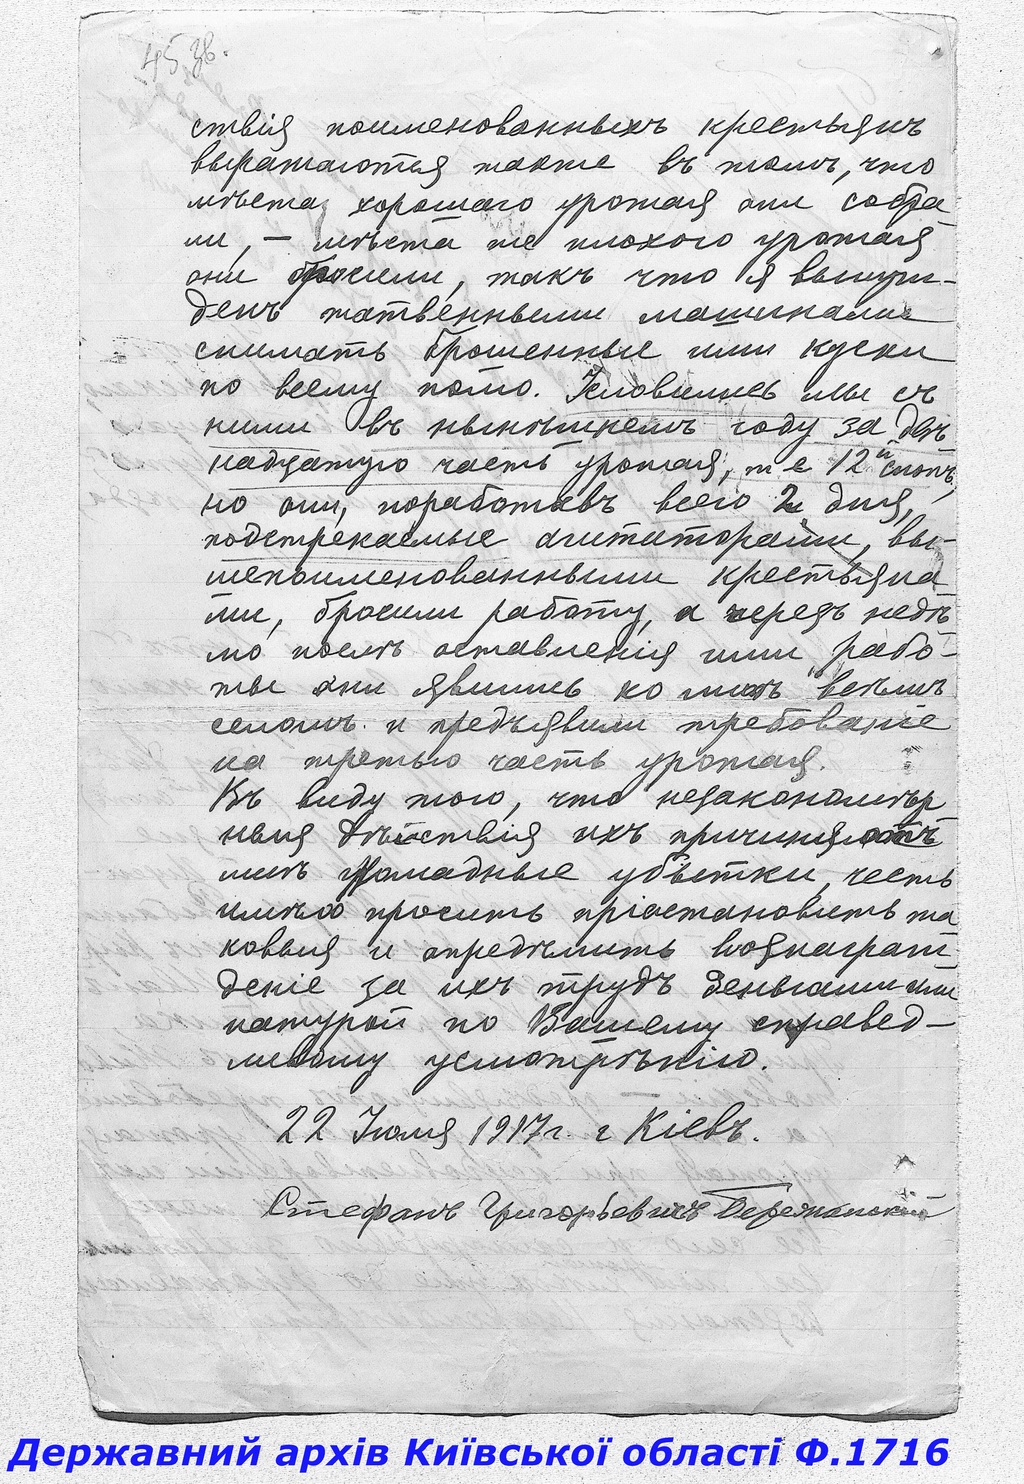 45 зв.
ствія поименованныхъ крестьянъ
выражаются также въ томъ, что
мѣста хорошаго урожая они собра
ли, – мѣста же плохого урожая
они бросили, такъ что я вынуж-
денъ жатвенными машинами
снимать брошенные ими куски
по всему полю. Условились мы съ
ними въ нынѣшнемъ году за двѣ
надцатую часть урожая, т е 12й снопъ,
но они, поработавъ всего 2 дня,
подстрекаемые агитаторами, вы-
шепоименованными крестьяна
ми, бросили работу, а черезъ недѣ
лю послѣ оставленія ими рабо-
ты они явились ко мнѣ всѣмъ
селомъ и предъявили требованіе
на третью часть урожая.
Въ виду того, что незакономѣр
ныя дѣйствія ихъ причиняютъ
мнѣ громадные убытки, честь
имѣю просить пріостановить та
ковыя и опредѣлить вознаграж
деніе за ихъ трудъ деньгами или
натурой по Вашему справед-
ливому усмотрѣнію.
22 Іюля 1917 г. г Кіевъ.
Стефанъ Григорьевичъ Бережанскій
Державний архів Київської області Ф.1716